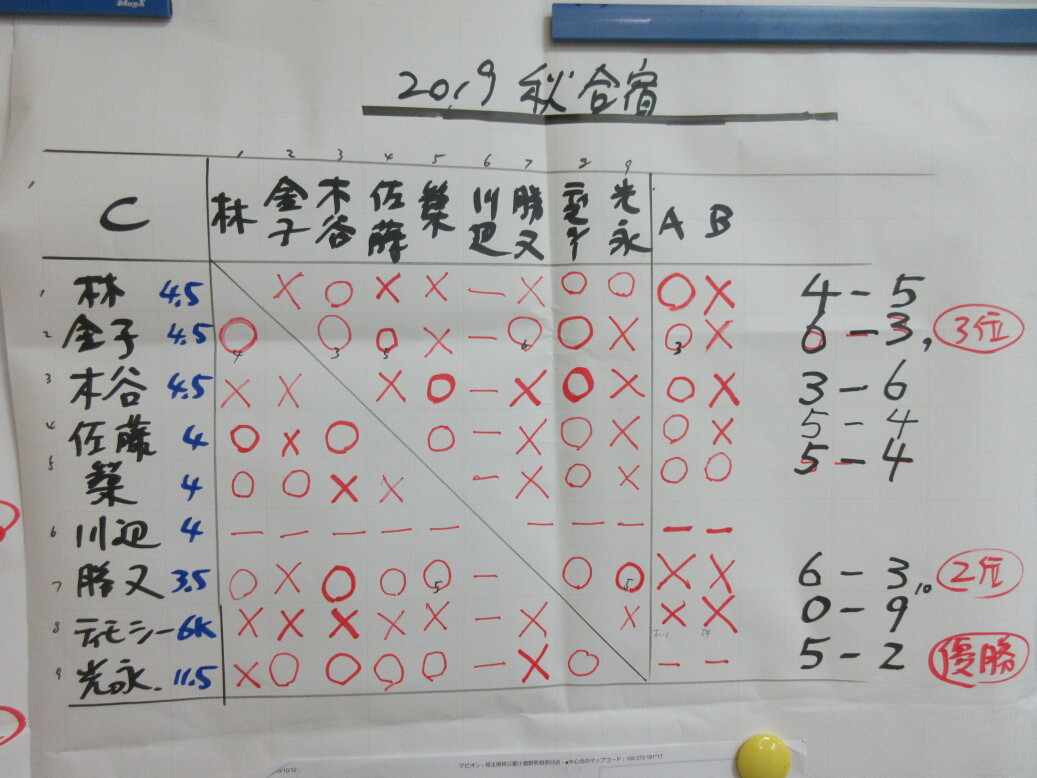 MagX
2019 秋合宿
1 2 3 4 5 6 7 8 9
C 林 金子 木谷 佐藤 築 川辺 勝又 光永 A B
1 林 4.5 × ○ × × — × ○ ○ ○ × 4-5
2 金子 4.5 ○4 ○3 ○5 × — ○6 ○ × ○3 × 3位
3 木谷 4.5 × × × ○ — × ○ × ○ × 3-6
4 佐藤 4 ○ × ○ ○ — × ○ × ○ × 5-4
5 築 4 ○ ○ × × — × ○ × ○ ○ 5-4
6 川辺 4 — — — — — — — — — —
7 勝又 3.5 ○ × ○ ○ ○5 — ○ ○5 × × 6-3,10 2位
8 ティモシー 6K × × × × × — × × × × 0-9
9 光永. 11.5 × ○ ○ ○ ○ — × ○ — — 5-2 優勝